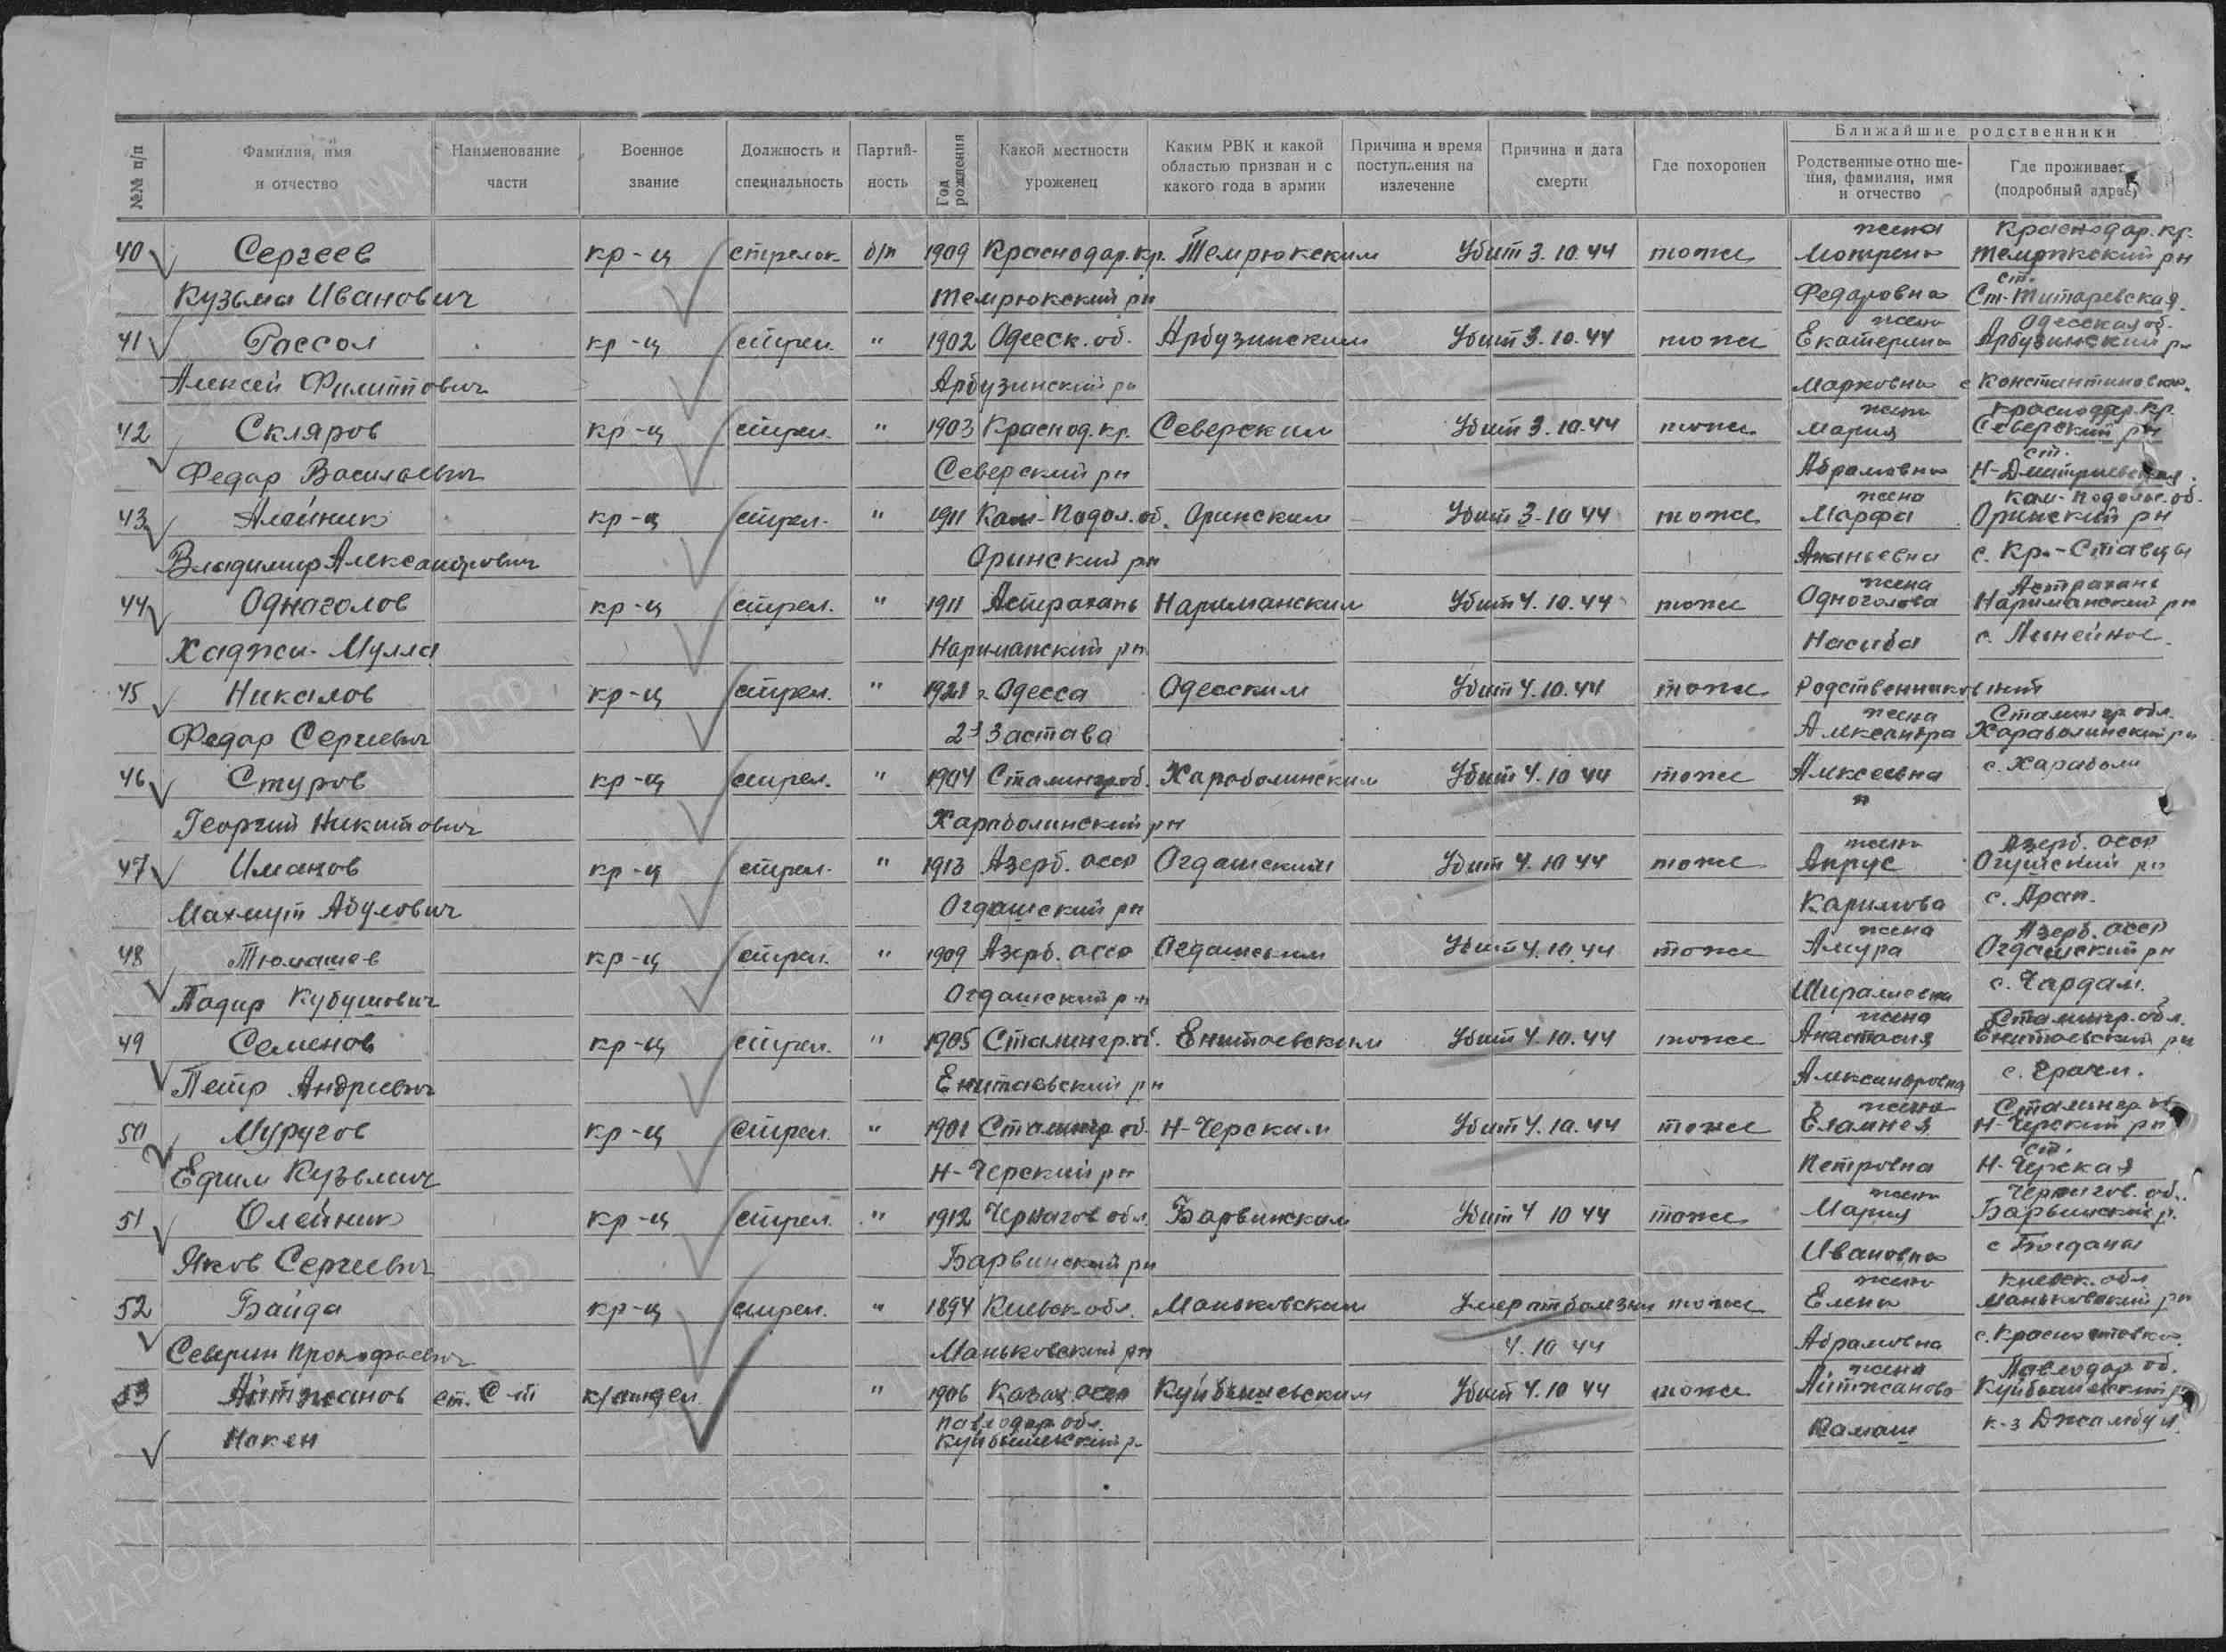 Ближайшие родственники
№№ п/п Фамилия, имя и отчество Наименование части Военное звание Должность и специальность Партийность Год рождения Какой местности уроженец Каким РВК и какой областью призван и с какого года в армии Причина и время поступления на излечение Причина и дата смерти Где похоронен Родственные отношения, фамилия, имя и отчество Где проживает (подробный адрес)
жена Краснодар. кр.
40 Сергеев кр-ц стрелок б/п 1909 Краснодар. кр. Темрюкским Убит 3.10.44 тоже Мотрена Темрюкский рн
ст.
Кузьма Иванович Темрюкский рн Федаровна Ст-Титаревская
жена Одесская об.
41 Рассол кр-ц стрел. " 1902 Одесск. об. Арбузинским Убит 3.10.44 тоже Екатерина Арбузинский рн
Алексей Филиппович Арбузинский рн Марковна с Константиновка
жена Краснодар. кр.
42 Скляров кр-ц стрел. " 1903 Краснод. кр. Северским Убит 3.10.44 тоже Мария Северский рн
ст.
Федар Васильевич Северский рн Абрамовна Н-Дмитриевская
жена Кам-Подольс. об.
43 Алейник кр-ц стрел. " 1911 Кам-Подол. об. Оринским Убит 3.10 44 тоже Марфа Оринский рн
Владимир Александрович Оринский рн Ананьевна с. Кр.-Ставцы
жена Астрахань
44 Одноголов кр-ц стрел. " 1911 Астрахань Нариманским Убит 4.10.44 тоже Одноголова Нариманский рн
Хаджи-Мулла Нариманский рн Насиба с. Линейное
45 Никалов кр-ц стрел. " 1921 г. Одесса Одесским Убит 4.10.44 тоже Родственников нит
жена Сталингр обл.
Федар Сергиевич 2я Застава Александра Хараболинский рн
46 Стуров кр-ц стрел. " 1904 Сталингр об. Хароболинским Убит 4.10 44 тоже Алексеевна с. Хараболи
Георгий Никитович Хараболинский рн
жена Азерб. осср
47 Иманов кр-ц стрел. " 1913 Азерб. осср Огдашским Убит 4.10 44 тоже
Махмут Абулович Огдашский рн Каримова с. Арап.
жена Азерб. осср
48 Тюмашев кр-ц стрел. " 1909 Азерб. осср Огдашским Убит 4.10.44 тоже Амура Огдашский рн
Кубушович Огдашский р-н с. Чардам.
жена Сталингр. обл.
49 Семенов кр-ц стрел. " 1905 Сталингр. об. Енитаевским Убит 4.10.44 тоже Анастасия Енитаевский рн
Петр Андреевич Енитаевский рн Александровна
жена Сталингр об
50 Муругов кр-ц стрел. " 1901 Сталингр об. Н-Черским Убит 4.10.44 тоже Еламнея Н-Черский рн
ст.
Ефим Кузьмич Н-Черский рн Петровна Н-Черская
жена Чернигов. об.
51 Олейник кр-ц стрел. " 1912 Чернагов обл. Барвинским Убит 4 10 44 тоже Мария Барвинский р.
Яков Сергиевич Барвинский рн Ивановна с Богданы
жена Киевск. обл
52 Байда кр-ц стрел. " 1894 Киевск обл. Маньковским Умер от болезни тоже Елена Маньковский рн
Северин Прокофьевич Маньковский рн 4.10 44 Абрамовна с. Красноставка
жена Павлодар об.
53 Айтжанов ст. С-т к/отдел " 1906 Казах. осср Куйбышевским Убит 4.10 44 тоже Айтжанова Куйбышевский р
Павлодар обл.
Накен Куйбышевский р- Камаш к-з Джамбул
ПАМЯТЬ НАРОДА
ЦАМО РФ